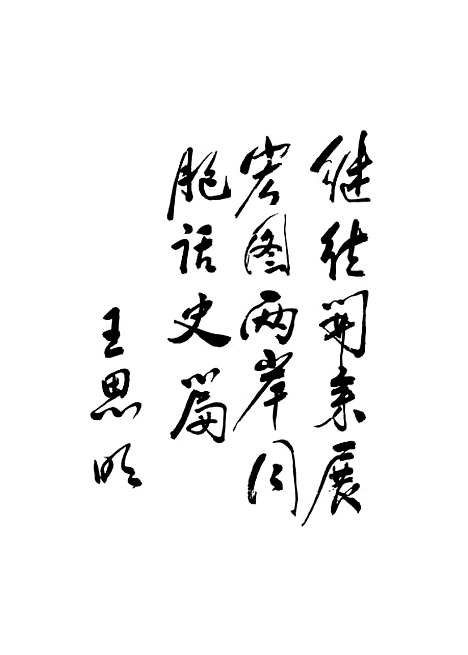 继往開来展
宏图两岸同
胞话史篇
王思明